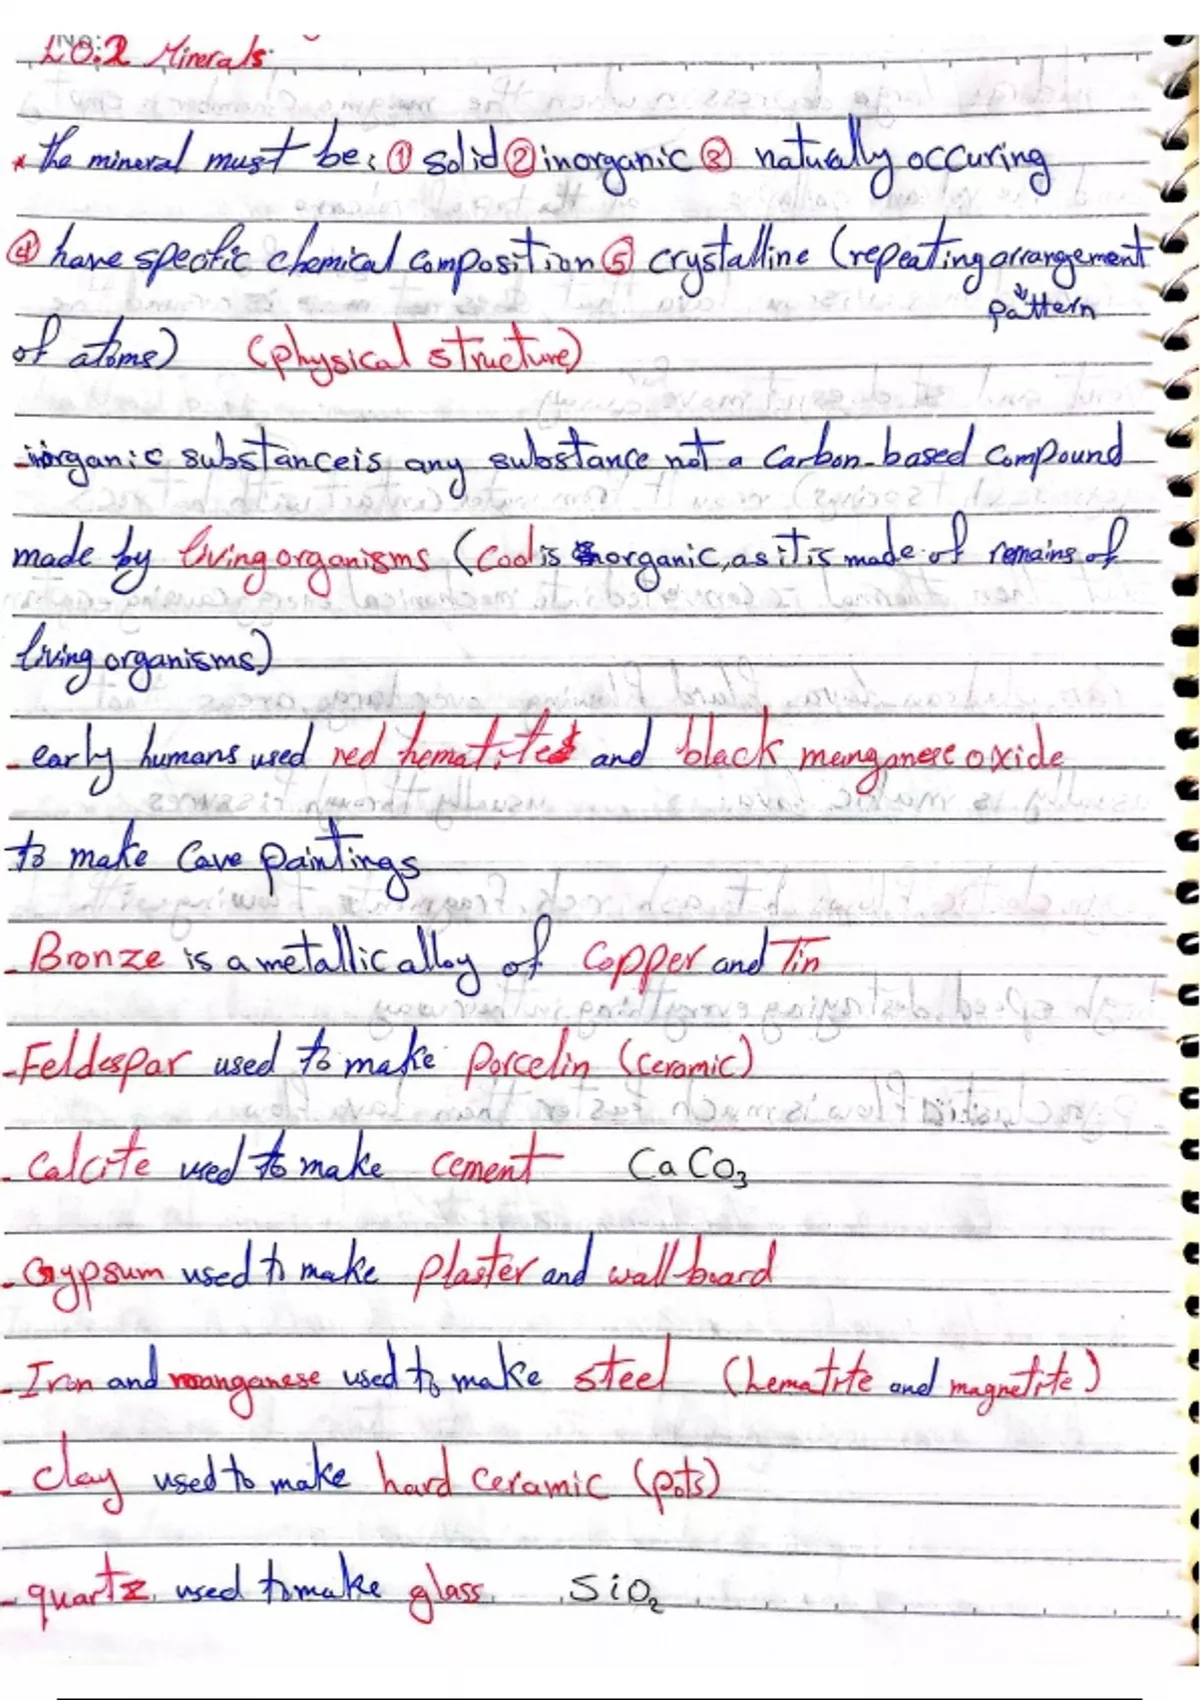 LO.2 Minerals
* the mineral must be: ① solid ② inorganic ③ naturally occuring
④ have specific chemical composition ⑤ crystalline (repeating arrangement
pattern
of atoms) (physical structure)
- inorganic substance is any substance not a carbon-based compound
made by living organisms (Coal is organic, as it is made of remains of
living organisms)
- early humans used red hematites and black manganese oxide
to make Cave paintings
- Bronze is a metallic alloy of Copper and Tin
- Feldespar used to make Porcelin (Ceramic)
- Calcite used to make cement CaCO₃
- Gypsum used to make plaster and wall board
- Iron and manganese used to make steel (hematite and magnetite)
- clay used to make hard ceramic (pots)
- quartz used to make glass SiO₂